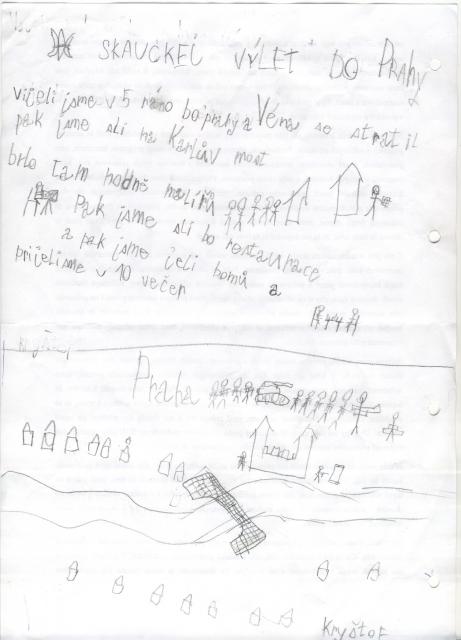 SKAUCKEJ VÝLET DO PRAHY
vijeli jsme v 5 ráno bo prahy a Véna se stratil
pak jsme sli na Karlův most
brlo tam hodně malířů
Pak jsme sli bo restaurace
a pak jsme jeli bomů a
prijeli jsme v 10 večer
Praha
Kryštof